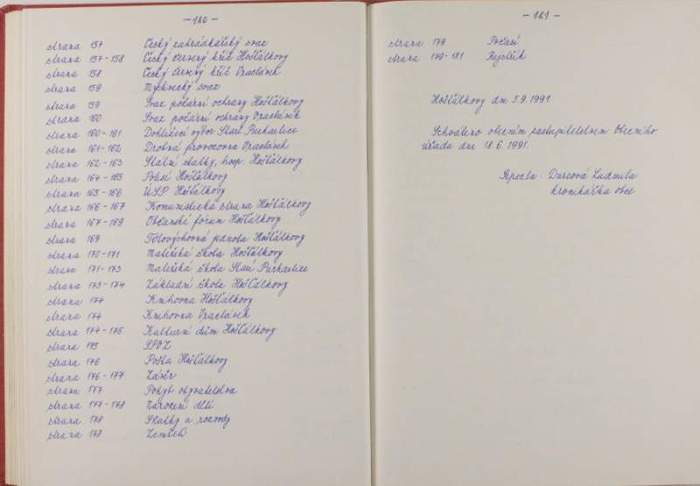 - 180 -
strana 157 Český zahrádkářský svaz
strana 157-158 Český červený kříž Hošťálkovy
strana 158 Český červený kříž Vraclávek
strana 159 Myslivecký svaz
strana 159 Svaz požární ochrany Hošťálkovy
strana 160 Svaz požární ochrany Vraclávek
strana 160-161 Dohlížecí výbor Staré Purkartice
strana 161-162 Drobná provozovna Vraclávek
strana 162-163 Státní statky, hosp. Hošťálkovy
strana 164-165 Polesí Hošťálkovy
strana 165-166 ÚSP Hošťálkovy
strana 166-167 Komunistická strana Hošťálkovy
strana 167-169 Občanské fórum Hošťálkovy
strana 169 Tělovýchovná jednota Hošťálkovy
strana 170-171 Mateřská škola Hošťálkovy
strana 171-173 Mateřská škola Staré Purkartice
strana 173-174 Základní škola Hošťálkovy
strana 174 Knihovna Hošťálkovy
strana 174 Knihovna Vraclávek
strana 174-175 Kulturní dům Hošťálkovy
strana 175 SPOZ
strana 176 Pošta Hošťálkovy
strana 176-177 Závěr
strana 177 Pohyb obyvatelstva
strana 177-178 Narození dětí
strana 178 Sňatky a rozvody
strana 178 Zemřelí
- 181 -
strana 179 Počasí
strana 179-181 Rejstřík
Hošťálkovy dne 3.9.1991
Schváleno obecním zastupitelstvem Obecního
úřadu dne 18.6.1991.
Sepsala: Ludmila
kronikářka obce